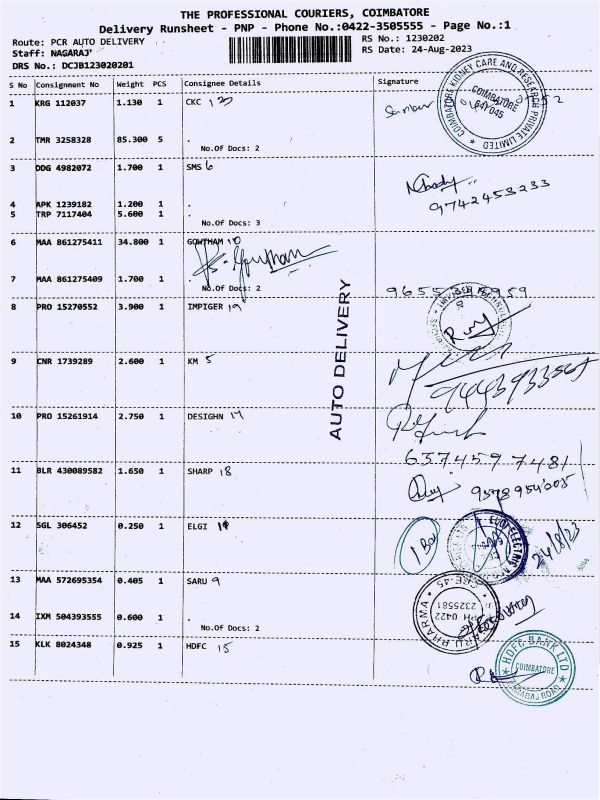 THE PROFESSIONAL COURIERS, COIMBATORE
Delivery Runsheet - PNP - Phone No.:0422-3505555 - Page No.:1
Route: PCR AUTO DELIVERY RS No.: 1230202
Staff: NAGARAJ' RS Date: 24-Aug-2023
DRS No.: DCJB123020201
S No Consignment No Weight PCS Consignee Details Signature
1 KRG 112037 1.130 1 CKC 13
COIMBATORE KIDNEY CARE AND RESEARCH PRIVATE LIMITED
COIMBATORE
2 TMR 3258328 85.300 5 .
No.Of Docs: 2
3 DDG 4982072 1.700 1 SMS 6
9742453233
4 APK 1239182 1.200 1 .
5 TRP 7117404 5.600 1 .
No.Of Docs: 3
6 MAA 861275411 34.800 1 GOWTHAM 10
Gowtham
7 MAA 861275409 1.700 1 .
No.Of Docs: 2
8 PRO 15270552 3.900 1 IMPIGER 19
AUTO DELIVERY
9 CNR 1739289 2.600 1 KM 5
10 PRO 15261914 2.750 1 DESIGHN 17
6374597481
11 BLR 430089582 1.650 1 SHARP 18
9578954005
12 SGL 306452 0.250 1 ELGI 19
1 Box
24/8/23
13 MAA 572695354 0.405 1 SARU 9
PH 0422
2325581
14 IXM 504393555 0.600 1 .
No.Of Docs: 2
15 KLK 8024348 0.925 1 HDFC 15
HDFC BANK LTD
COIMBATORE